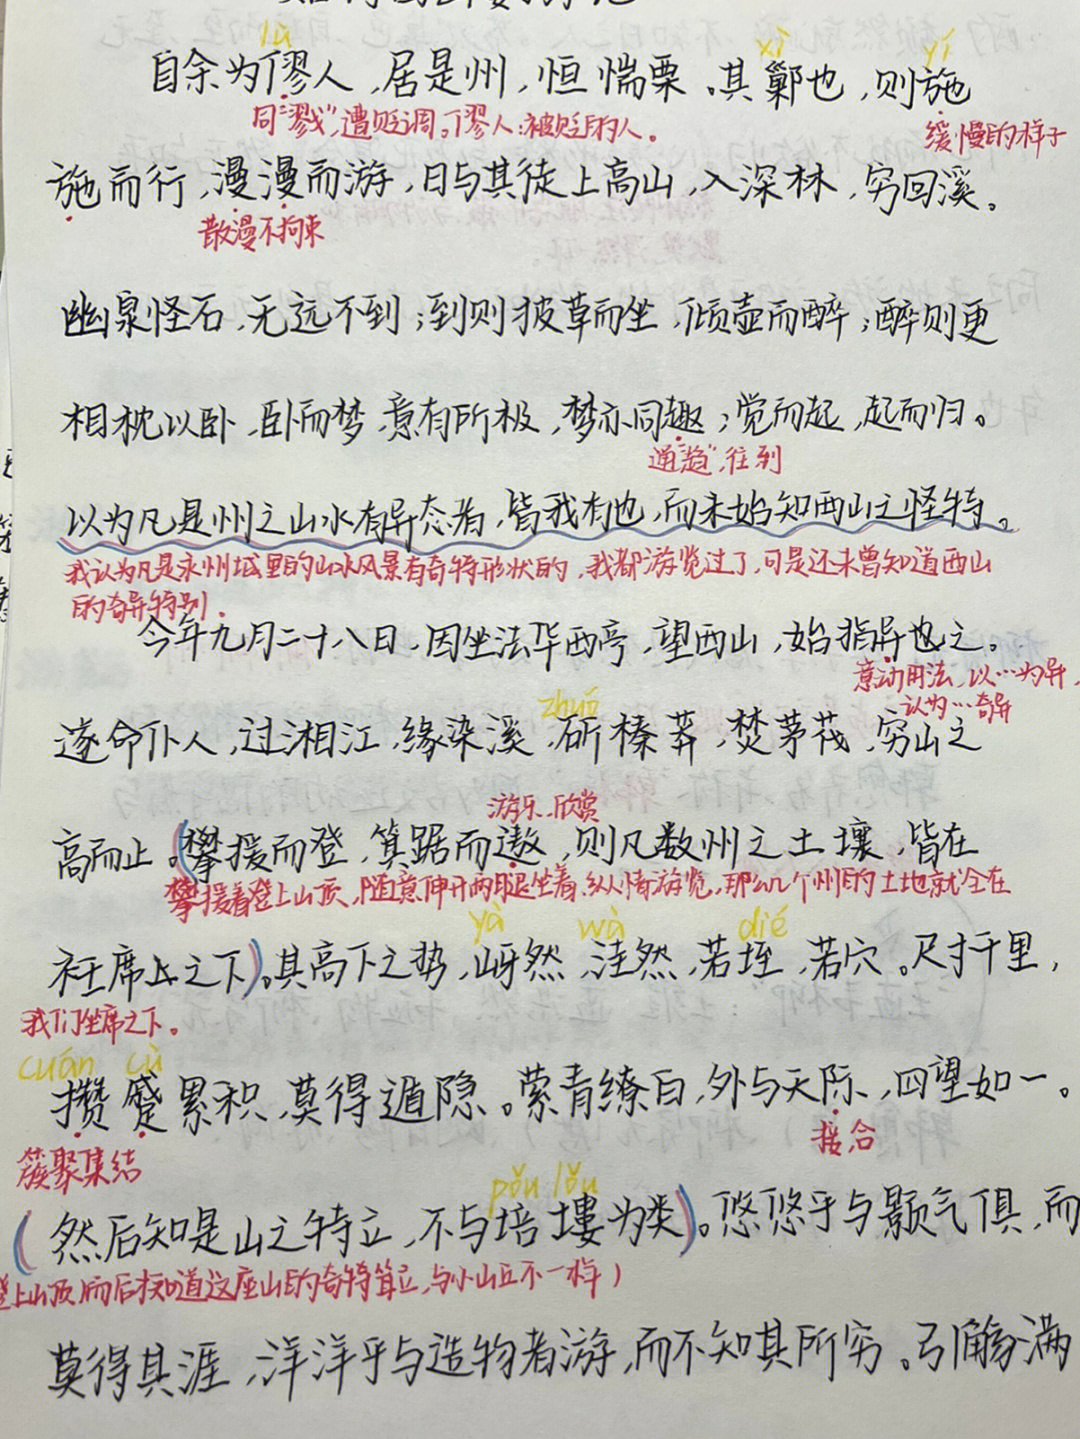 lù xì yí
自余为僇人,居是州,恒惴栗。其隟也,则施
同“戮”,遭贬谪。僇人:被贬的人。 缓慢的样子
施而行,漫漫而游,日与其徒上高山,入深林,穷回溪。
散漫不拘束
幽泉怪石,无远不到;到则披草而坐,倾壶而醉;醉则更
相枕以卧,卧而梦,意有所极,梦亦同趣;觉而起,起而归。
通“趋”,往到
以为凡是州之山水有异态者,皆我有也,而未始知西山之怪特。
我认为凡是永州城里的山水风景有奇特形状的,我都游览过了,可是还未曾知道西山
的奇异特别。
今年九月二十八日,因坐法华西亭,望西山,始指异也之。
意动用法,以…为异,
认为…奇异
zhuó
遂命仆人,过湘江,缘染溪,斫榛莽,焚茅茷,穷山之
游乐、欣赏
高而止。(攀援而登,箕踞而遨,则凡数州之土壤,皆在
攀援着登上山顶,随意伸开两腿坐着,纵情游览,那么几个州的土地就全在
yà wà dié
衽席之下)。其高下之势,岈然,洼然,若垤,若穴。尺寸千里,
我们坐席之下。
cuán cù
攒蹙累积,莫得遁隐。萦青缭白,外与天际,四望如一。
簇聚集结 接合
pǒu lǒu
(然后知是山之特立,不与培塿为类)。悠悠乎与颢气俱,而
登上山顶,而后知道这座山的奇特耸立,与小山丘不一样)
莫得其涯,洋洋乎与造物者游,而不知其所穷。引觞满